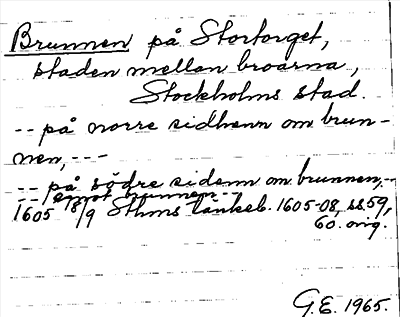 Brunnen på Stortorget,
staden mellan broarna,
Stockholms stad.
-- på norre sidhenn om brun-
nen, ---
-- på södre sidenn om brunnen, --
-- emot brunnen --
1605 18/9 Sthms tänkeb. 1605-08, ss. 59,
60. orig.
G.E. 1965.